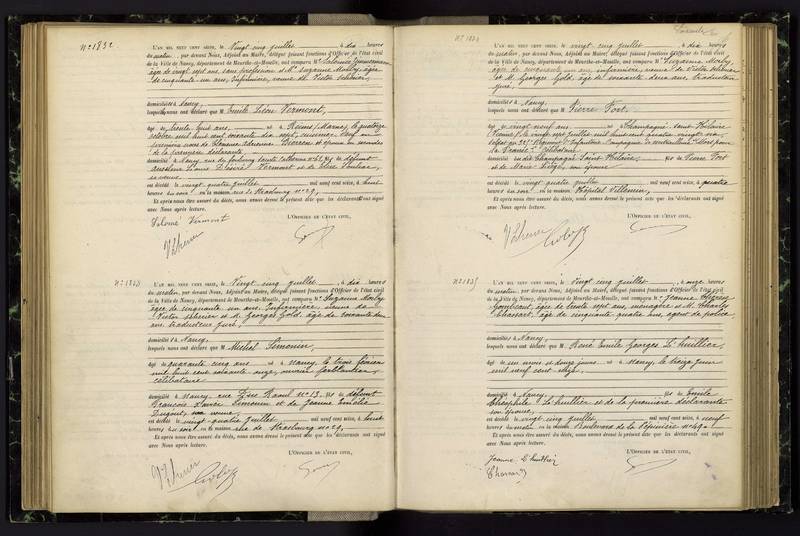 N° 1832
L'AN MIL NEUF CENT SEIZE, le vingt cinq juillet, à dix heures
du matin, par devant Nous, Adjoint au Maire, délégué faisant fonctions d'Officier de l'état civil
de la Ville de Nancy, département de Meurthe-et-Moselle, ont comparu M
âgée de vingt sept ans, sans profession et Me Suzanne Morby, âgée
de cinquante un ans, infirmière, veuve de Victor
domiciliés à Nancy,
lesquels nous ont déclaré que M Emile Léon Vermont,
âgé de trente huit ans, né à Reims (Marne), le quatorze
octobre mil huit cent soixante dix sept,
premières noces de
de la première déclarante
domicilié à Nancy rue du faubourg Sainte Catherine n° 61, fils de défunt
Vermont et de
sa veuve
est décédé le vingt quatre juillet mil neuf cent seize, à huit
heures du soir, en la maison, rue de Strasbourg n° 29,
Et après nous être assuré du décès, nous avons dressé le présent acte que les déclarants ont signé
avec Nous après lecture.
L'OFFICIER DE L'ÉTAT CIVIL,
Salomé Vermont
N° 1833
L'AN MIL NEUF CENT SEIZE, le vingt cinq juillet, à dix heures
du matin, par devant Nous, Adjoint au Maire, délégué faisant fonctions d'Officier de l'état civil
de la Ville de Nancy, département de Meurthe-et-Moselle, ont comparu Me Suzanne Morby
âgée de cinquante un ans, infirmière, veuve de
Victor et M. Georges Gold, âgé de soixante deux
ans, traducteur juré,
domiciliés à Nancy,
lesquels nous ont déclaré que M Michel Simonin,
âgé de quarante cinq ans né à Nancy, le trois février
mil huit cent soixante onze, ouvrier
célibataire
domicilié à Nancy, rue Raoul n° 13, fils de défunt
François Xavier Simonin et de Jeanne Emélie
Dugout, sa veuve
est décédé le vingt-quatre juillet mil neuf cent seize, à huit
heures du soir, en la maison rue de Strasbourg n° 29,
Et après nous être assuré du décès, nous avons dressé le présent acte que les déclarants ont signé
avec Nous après lecture.
L'OFFICIER DE L'ÉTAT CIVIL,
N° 1834
L'AN MIL NEUF CENT SEIZE, le vingt cinq juillet, à dix heures
du matin, par devant Nous, Adjoint au Maire, délégué faisant fonctions d'Officier de l'état civil
de la Ville de Nancy, département de Meurthe-et-Moselle, ont comparu Me Suzanne Morby,
âgée de cinquante un ans, infirmière, veuve de Victor
et M. Georges Gold, âgé de soixante deux ans, traducteur
juré,
domiciliés à Nancy,
lesquels nous ont déclaré que M Pierre Fort
âgé de vingt neuf ans, né à Champagné Saint Hilaire
(Vienne) le vingt sept juillet mil huit cent quatre vingt six,
soldat au Régiment d'Infanterie Compagnie de mitrailleuses "Mort pour
la France" célibataire
domicilié au dit Champagné Saint Hilaire, fils de Pierre Fort
et de Marie son épouse
est décédé le vingt quatre juillet mil neuf cent seize, à quatre
heures du soir en la maison Hôpital Villemin,
Et après nous être assuré du décès, nous avons dressé le présent acte que les déclarants ont signé
avec Nous après lecture.
L'OFFICIER DE L'ÉTAT CIVIL,
N° 1835
L'AN MIL NEUF CENT SEIZE, le vingt cinq juillet, à onze heures
du matin, par devant Nous, Adjoint au Maire, délégué faisant fonctions d'Officier de l'état civil
de la Ville de Nancy, département de Meurthe-et-Moselle, ont comparu Me Jeanne Thérèse
âgée de trente sept ans, ménagère et M. Charles
Chassard, âgé de cinquante quatre ans, agent de police,
domiciliés à Nancy,
lesquels nous ont déclaré que M René Emile Georges L'huillier,
âgé de un mois et douze jours né à Nancy, le treize juin
mil neuf cent seize,
domicilié à Nancy, fils de Emile
Théophile L'huillier et de la première déclarante
son épouse
est décédé le vingt cinq juillet mil neuf cent seize, à neuf
heures du matin en la maison Boulevard de la Pépinière n° 49
Et après nous être assuré du décès, nous avons dressé le présent acte que les déclarants ont signé
avec Nous après lecture.
L'OFFICIER DE L'ÉTAT CIVIL,
Jeanne L'huillier
Chassard